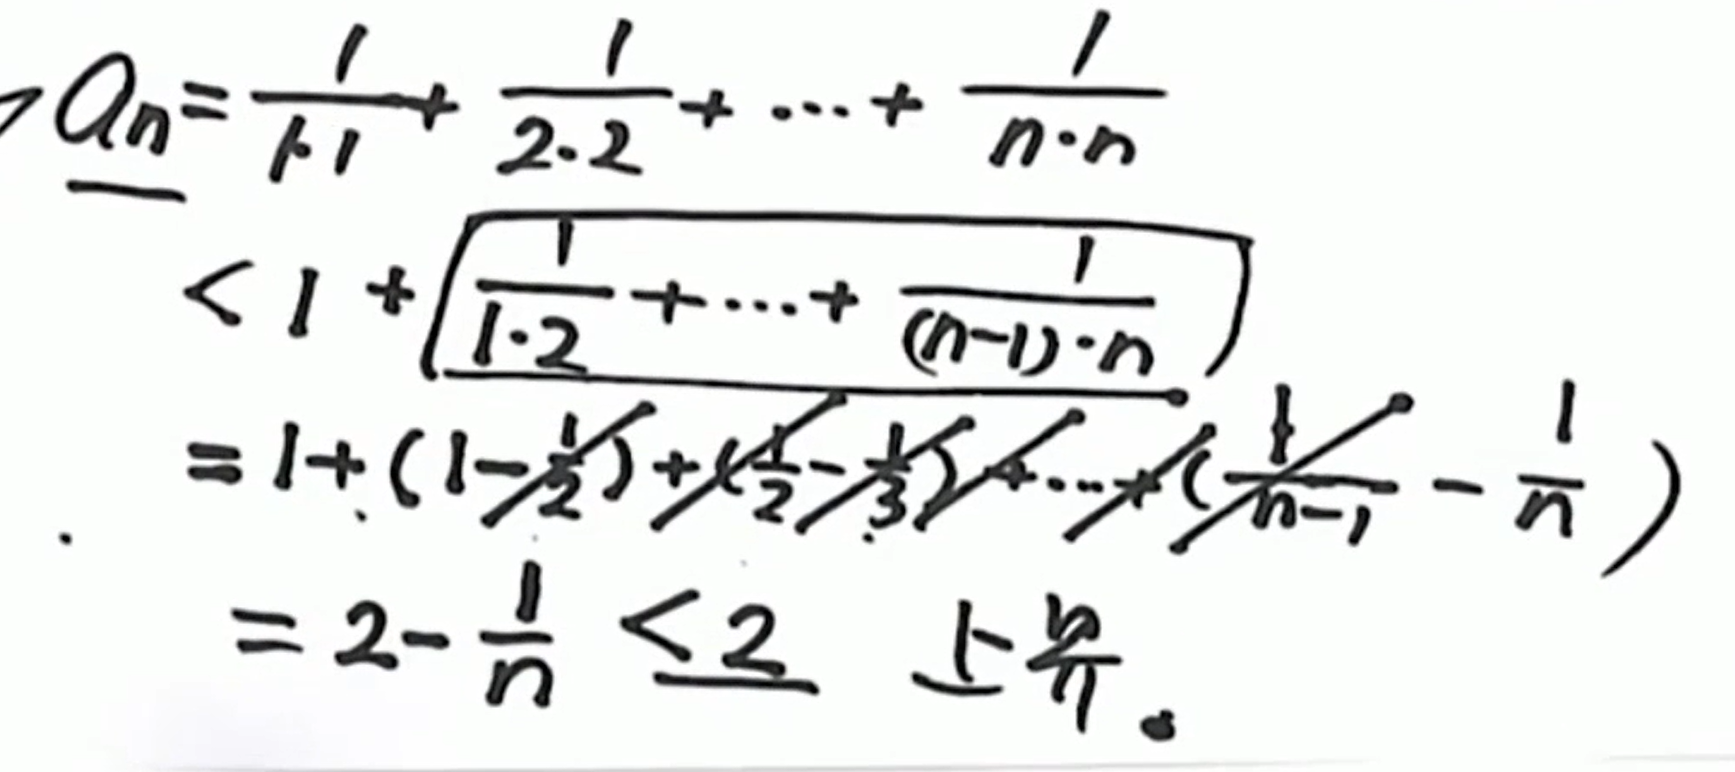 aₙ = 1/(1·1) + 1/(2·2) + ··· + 1/(n·n)
< 1 + (1/(1·2) + ··· + 1/((n-1)·n))
= 1 + (1 - 1/2) + (1/2 - 1/3) + ··· + (1/(n-1) - 1/n)
= 2 - 1/n < 2 上界.